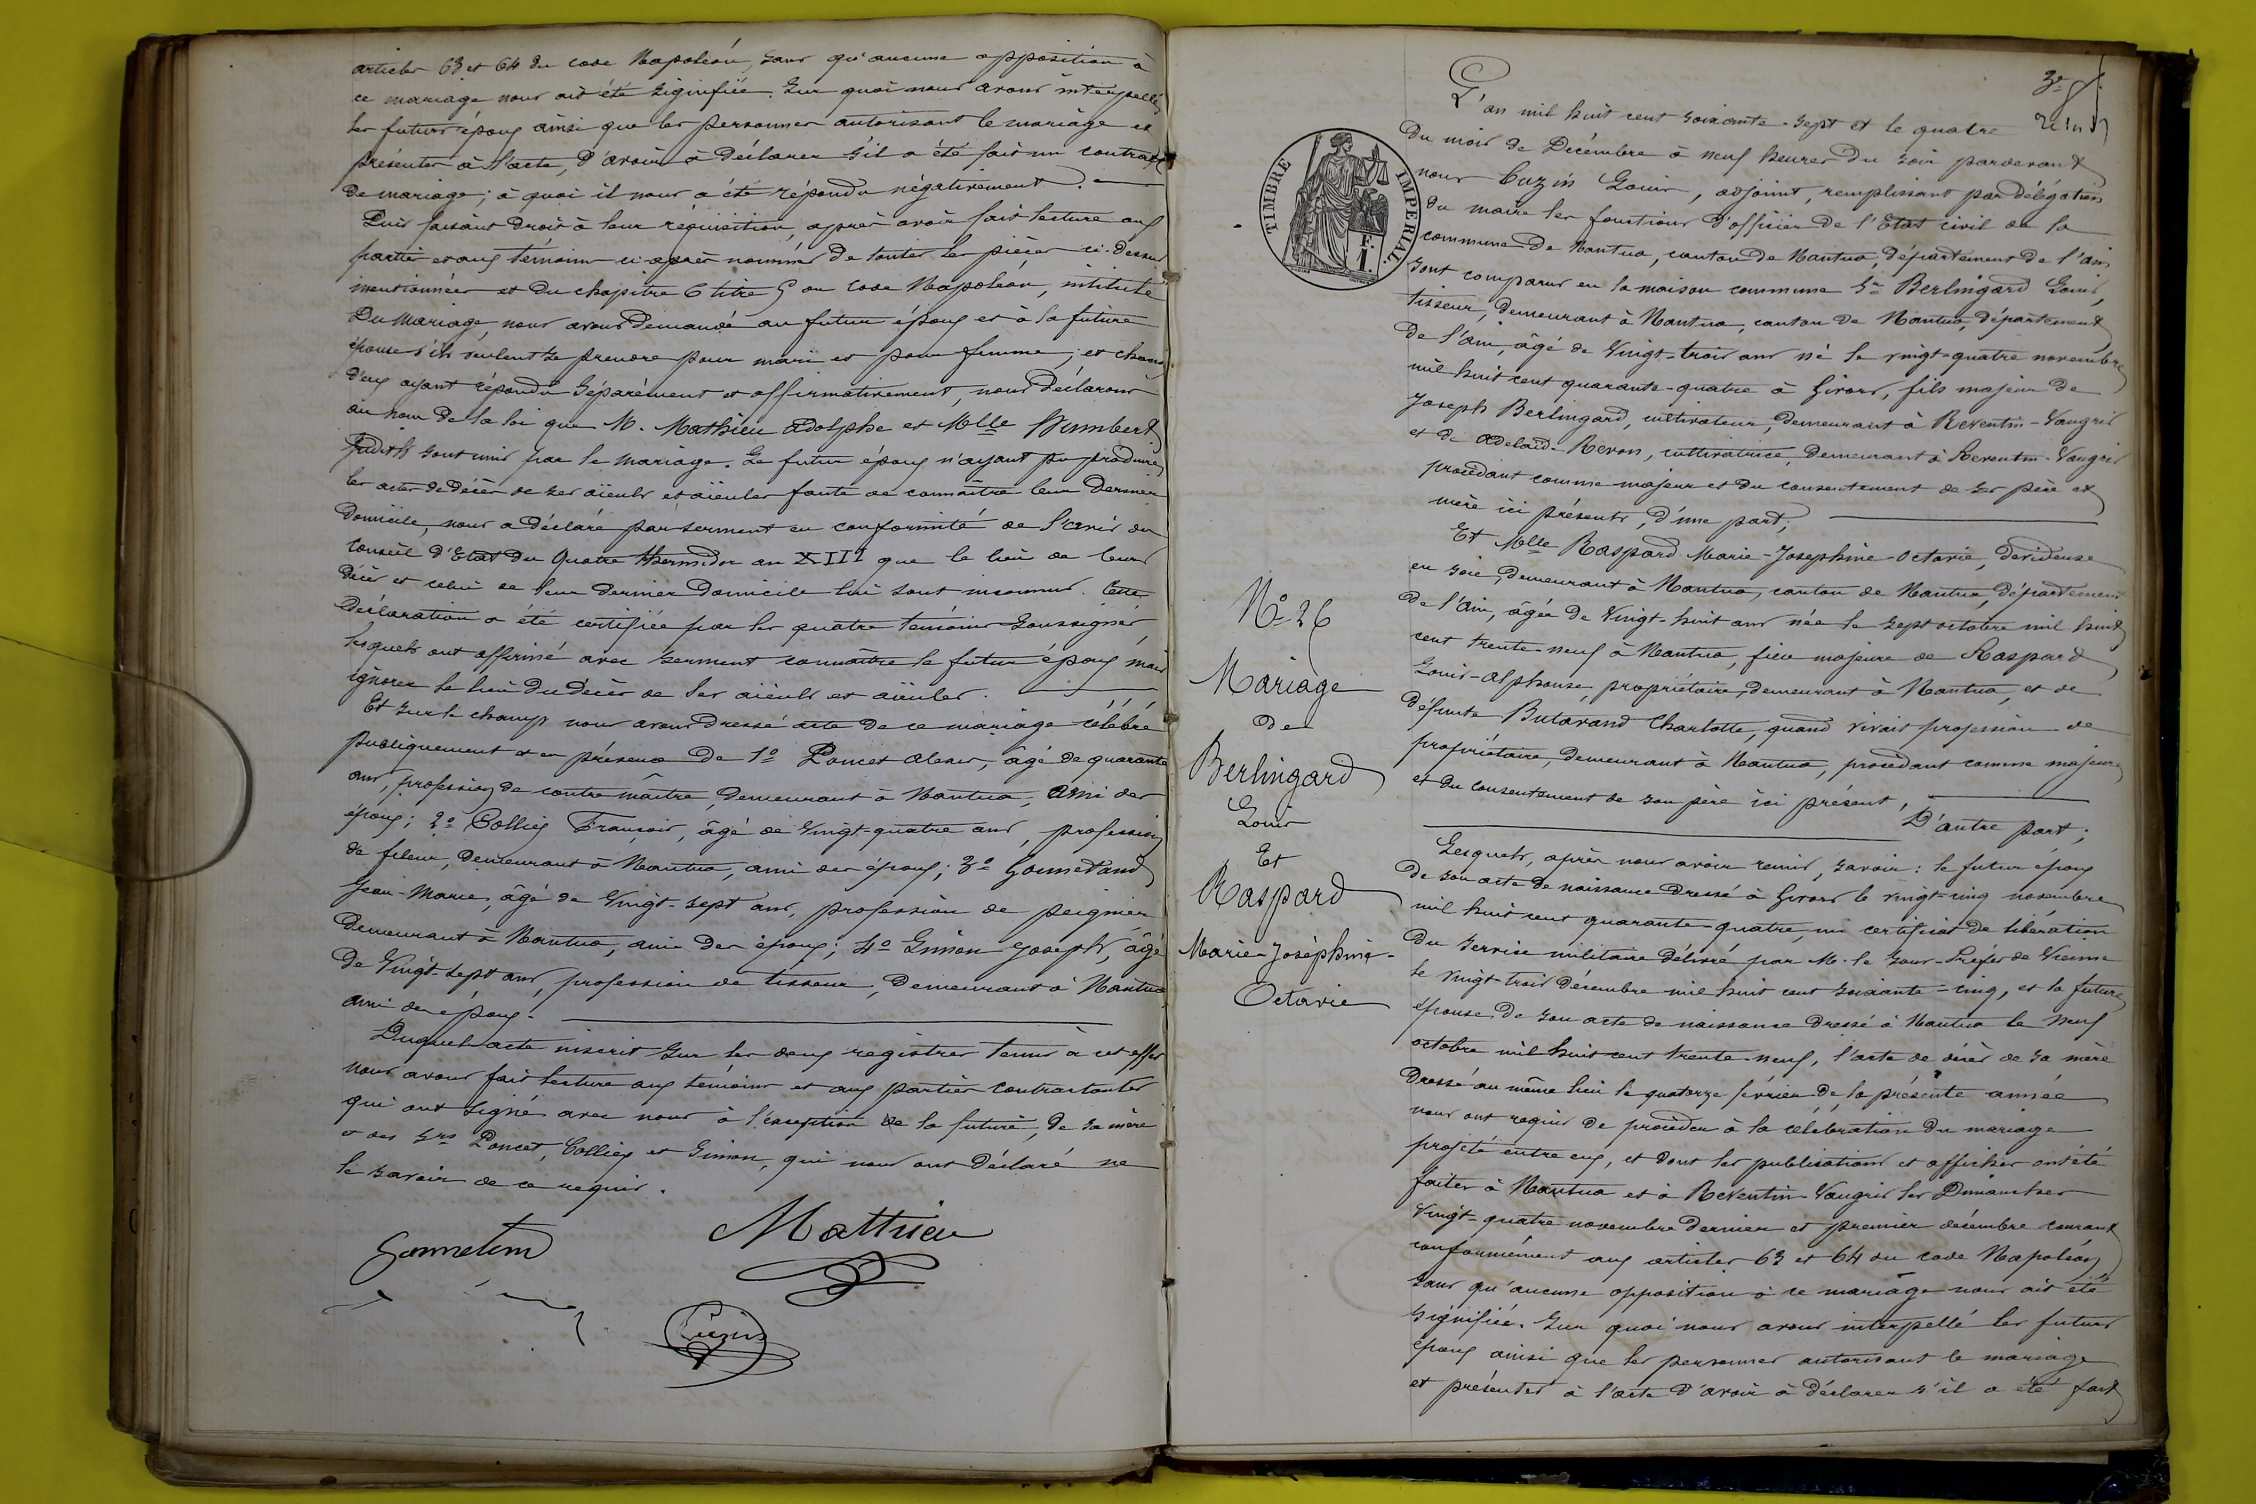 articles 63 et 64 du code Napoléon, sans qu'aucune opposition à
ce mariage nous ait été signifiée. Sur quoi nous avons interpellé
les futurs époux ainsi que les personnes autorisant le mariage et
présentes à l'acte, d'avoir à déclarer s'il a été fait un contrat
de mariage; à quoi il nous a été répondu négativement.
Puis faisant droit à leur réquisition, après avoir fait lecture aux
parties et aux témoins ci-après nommés de toutes les pièces ci-dessus
mentionnées et du chapitre 6 titre 5 du Code Napoléon, intitulé
Du Mariage, nous avons demandé au futur époux et à la future
épouse s'ils veulent se prendre pour mari et pour femme; et chacun
d'eux ayant répondu séparément et affirmativement, nous déclarons
au nom de la loi que M. Mathieu Adolphe et Melle Humbert
Judith sont unis par le mariage. Le futur époux n'ayant pu produire
les actes de décès de ses aïeuls et aïeules faute de connaître leur dernier
domicile, nous a déclaré par serment en conformité de l'avis du
Conseil d'Etat du Quatre Thermidor an XIII que le lieu de leurs
décès et celui de leur dernier domicile lui sont inconnus. Cette
déclaration a été certifiée par les quatre témoins soussignés,
lesquels ont affirmé avec serment connaître le futur époux mais
ignorer le lieu du décès de ses aïeuls et aïeules.
Et sur le champ nous avons dressé acte de ce mariage célébré
publiquement et en présence de 1º Poncet Alexis, âgé de quarante
ans, profession de contre maître, demeurant à Nantua, ami des
époux; 2º Colliex François, âgé de vingt-quatre ans, profession
de fileur, demeurant à Nantua, ami des époux; 3º Gonnetand
Jean-Marie, âgé de Vingt-sept ans, profession de peignier
demeurant à Nantua, ami des époux; 4º Simon Joseph, âgé
de Vingt-sept ans, profession de tisseur, demeurant à Nantua
ami des époux.
Duquel acte inscrit sur les deux registres tenus à cet effet
nous avons fait lecture aux témoins et aux parties contractantes
qui ont signé avec nous à l'exception de la future, de sa mère
et des Srs Poncet, Colliex et Simon, qui nous ont déclaré ne
le savoir de ce requis.
Mathieu
Cuzin
TIMBRE IMPERIAL.
F. 1.
Nº 26
Mariage
de
Berlingard
Louis
Et
Raspard
Marie-Joséphine-
Octavie
L'an mil huit cent soixante-sept et le quatre
du mois de Décembre à neuf heures du soir pardevant
nous Cuzin Louis, adjoint, remplissant par délégation
du maire les fonctions d'officier de l'Etat civil de la
commune de Nantua, canton de Nantua, département de l'ain
sont comparus en la maison commune Sr Berlingard Louis,
tisseur, demeurant à Nantua, canton de Nantua, département
de l'ain, âgé de Vingt-trois ans né le vingt-quatre novembre
mil huit cent quarante-quatre à Givors, fils majeur de
Joseph Berlingard, cultivateur, demeurant à Reventin-Vaugris
et de Adelaïd Revon, cultivatrice, demeurant à Reventin-Vaugris
procédant comme majeur et du consentement de ses père et
mère ici présents, d'une part;
Et Melle Raspard Marie-Josephine-Octavie, devideuse
en soie, demeurant à Nantua, canton de Nantua, département
de l'ain, âgée de Vingt-huit ans née le sept octobre mil huit
cent trente-neuf à Nantua, fille majeure de Raspard
Louis-Alphonse, propriétaire, demeurant à Nantua, et de
défunte Butavand Charlotte, quand vivait profession de
propriétaire, demeurant à Nantua, procédant comme majeure
et du consentement de son père ici présent,
D'autre part;
Lesquels, après nous avoir remis, savoir: le futur époux
de son acte de naissance dressé à Givors le vingt-cinq novembre
mil huit cent quarante-quatre, un certificat de libération
du service militaire délivré par M. le Sous-Préfet de Vienne
le vingt-trois décembre mil huit cent soixante-cinq, et la future
épouse de son acte de naissance dressé à Nantua le neuf
octobre mil huit cent trente-neuf, l'acte de décès de sa mère
dressé au même lieu le quatorze février de la présente année
nous ont requis de procéder à la célébration du mariage
projeté entre eux, et dont les publications et affiches ont été
faites à Nantua et à Reventin-Vaugris les Dimanches
Vingt-quatre novembre dernier et premier décembre courant
conformément aux articles 63 et 64 du code Napoléon
sans qu'aucune opposition à ce mariage nous ait été
signifiée. Sur quoi nous avons interpellé les futurs
époux ainsi que les personnes autorisant le mariage
et présentes à l'acte d'avoir à déclarer s'il a été fait